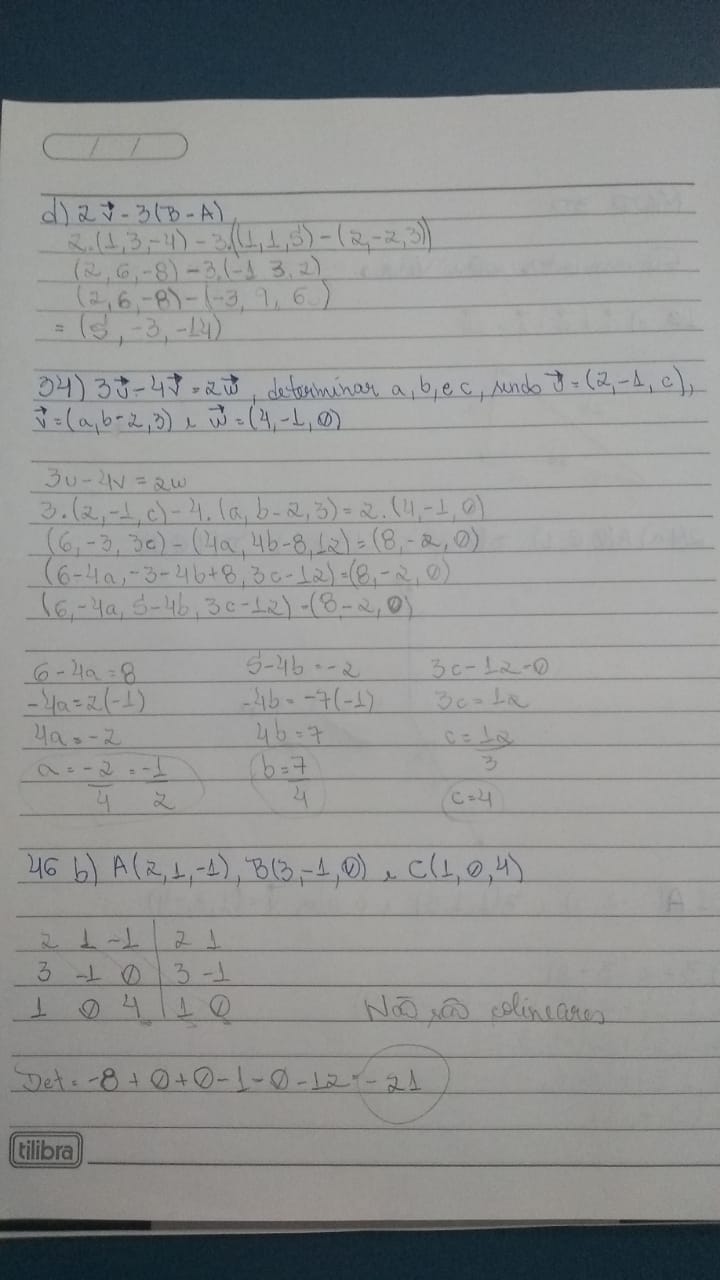 d) 2v⃗ - 3(B - A)
2.(1,3,-4) - 3.((1,1,5) - (2,-2,3))
(2, 6, -8) - 3.(-1 3, 2)
(2, 6, -8) - (-3, 9, 6)
= (5, -3, -14)
34) 3u⃗ - 4v⃗ = 2w⃗, determinar a, b, e c, sendo u⃗ = (2, -1, c),
v⃗ = (a, b-2, 3) e w⃗ = (4, -1, 0)
3u - 4v = 2w
3.(2,-1,c) - 4.(a, b-2,3) = 2.(4,-1,0)
(6,-3, 3c) - (4a, 4b-8, 12) = (8,-2,0)
(6-4a, -3-4b+8, 3c-12) = (8,-2,0)
(6,-4a, 5-4b, 3c-12) - (8-2,0)
6 - 4a = 8 5-4b = -2 3c-12-0
-4a = 2(-1) -4b = -7(-1) 3c = 12
4a = -2 4b = 7 c = 12/3
a = -2/4 = -1/2 b = 7/4 c = 4
46 b) A(2,1,-1), B(3,-1,0) e C(1,0,4)
2 1 -1 | 2 1
3 -1 0 | 3 -1
1 0 4 | 1 0 Não são colineares
Det = -8 + 0 + 0 - 1 - 0 - 12 = -21
tilibra